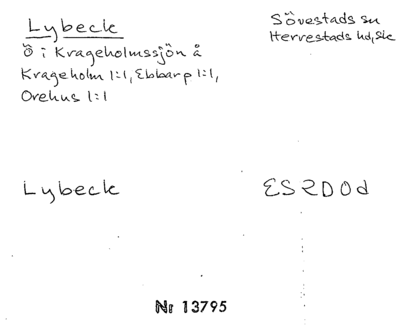 Lybeck
Sövestads sn
Herrestads hd, Sk
Ö i Krageholmssjön å
Krageholm 1:1, Ebbarp 1:1,
Orehus 1:1
Lybeck
ES2D0d
Nr 13795